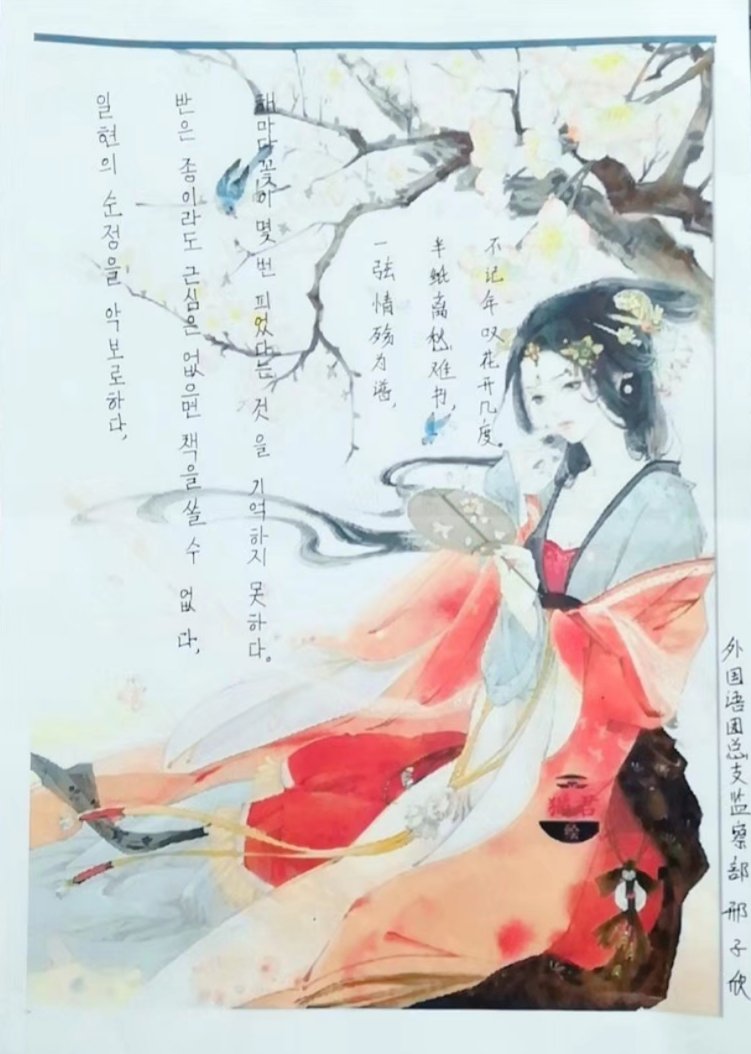 外国语团总支监察部 邢子欣
不记年叹花开几度。
半纸离愁难书,
一弦情殇为谱,
해마다 꽃이 몇 번 피었다는 것을 기억하지 못하다。
반은 종이라도 근심은 없으면 책을 쓸 수 없다,
일현의 순정을 악보로하다,
君
绘